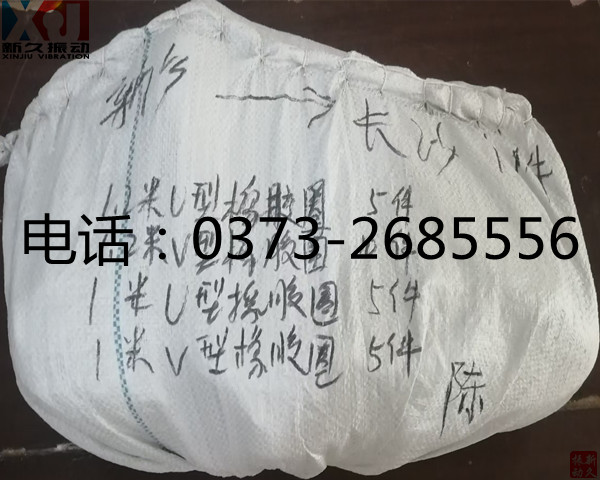 XJ
新久振动
XINJIU VIBRATION
→ 长沙 1件
1.2米U型橡胶圈 5件
电话：0373-2685556
米V型橡胶圈 件
1米U型橡胶圈 5件
1米V型橡胶圈 5件
陈
新久振动